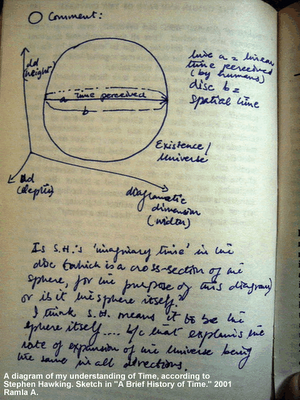 Comment:
old
height
line a = linear
time perceived
(by humans)
disc b =
spatial time
a time perceived
b
Existence/
Universe
old
(depth)
diagramatic
dimension
(width)
Is S.H.'s 'imaginary time' in the
disc (which is a cross-section of the
sphere, for the purpose of this diagram)
or is it the sphere itself?
I think S.H. means it to be the
sphere itself.... b/c that explains the
rate of expansion of the Universe being
the same in all directions.
A diagram of my understanding of Time, according to
Stephen Hawking. Sketch in "A Brief History of Time." 2001
Ramla A.